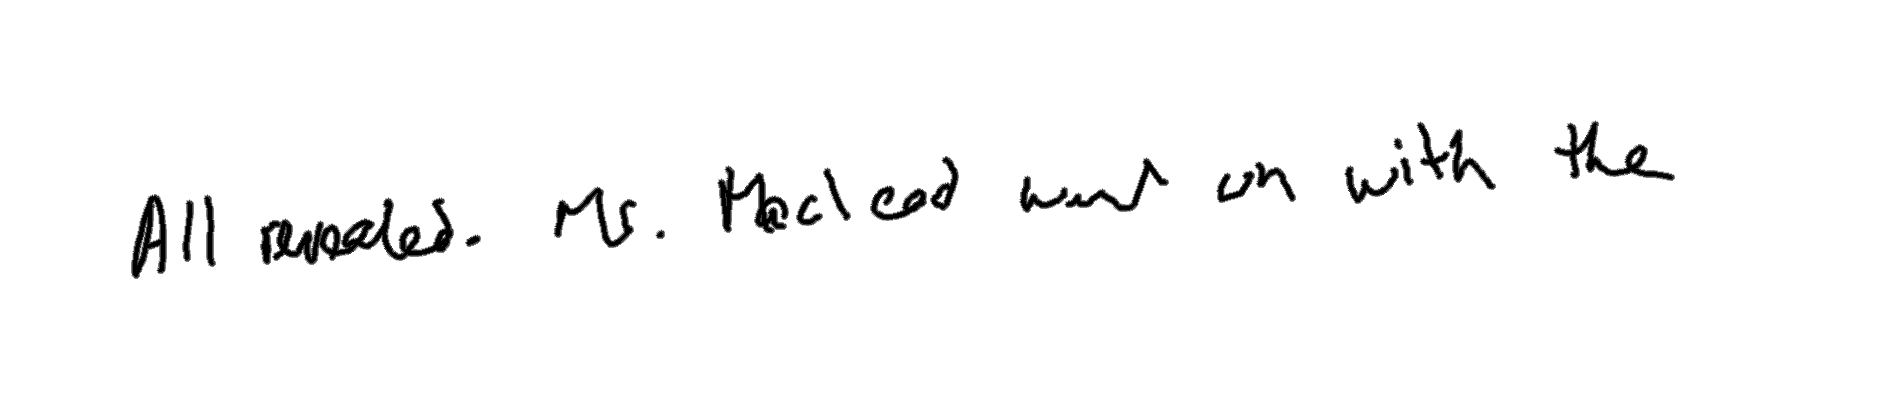 All revealed. Mr. Macleod went on with the